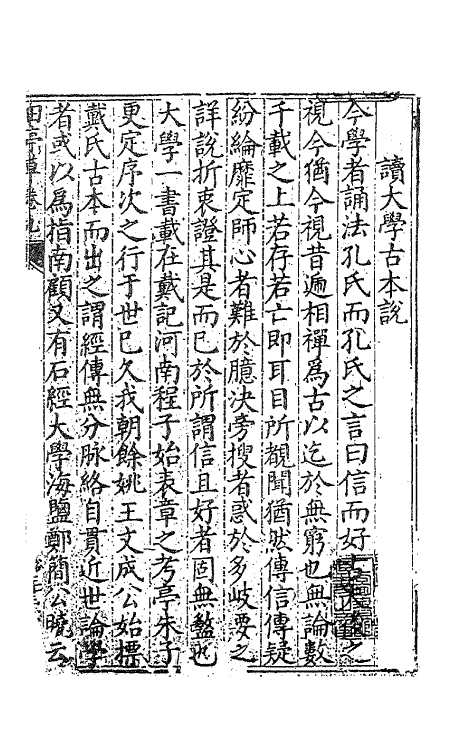 讀大學古本說
今學者誦法孔氏而孔氏之言曰信而好古之
視今猶今視昔遞相禪為古以迄於無窮也無論數
千載之上若存若亡即耳目所覩聞猶然傳信傳疑
紛綸靡定師心者難於臆決旁搜者惑於多岐要之
詳說折衷證其是而已於所謂信且好者固無盭也
大學一書載在戴記河南程子始表章之考亭朱子
更定序次之行于世已久我朝餘姚王文成公始標
戴氏古本而出之謂經傳無分脉絡自貫近世論學
者或以為指南顧又有石經大學海鹽鄭簡公曉云
田亭草卷九